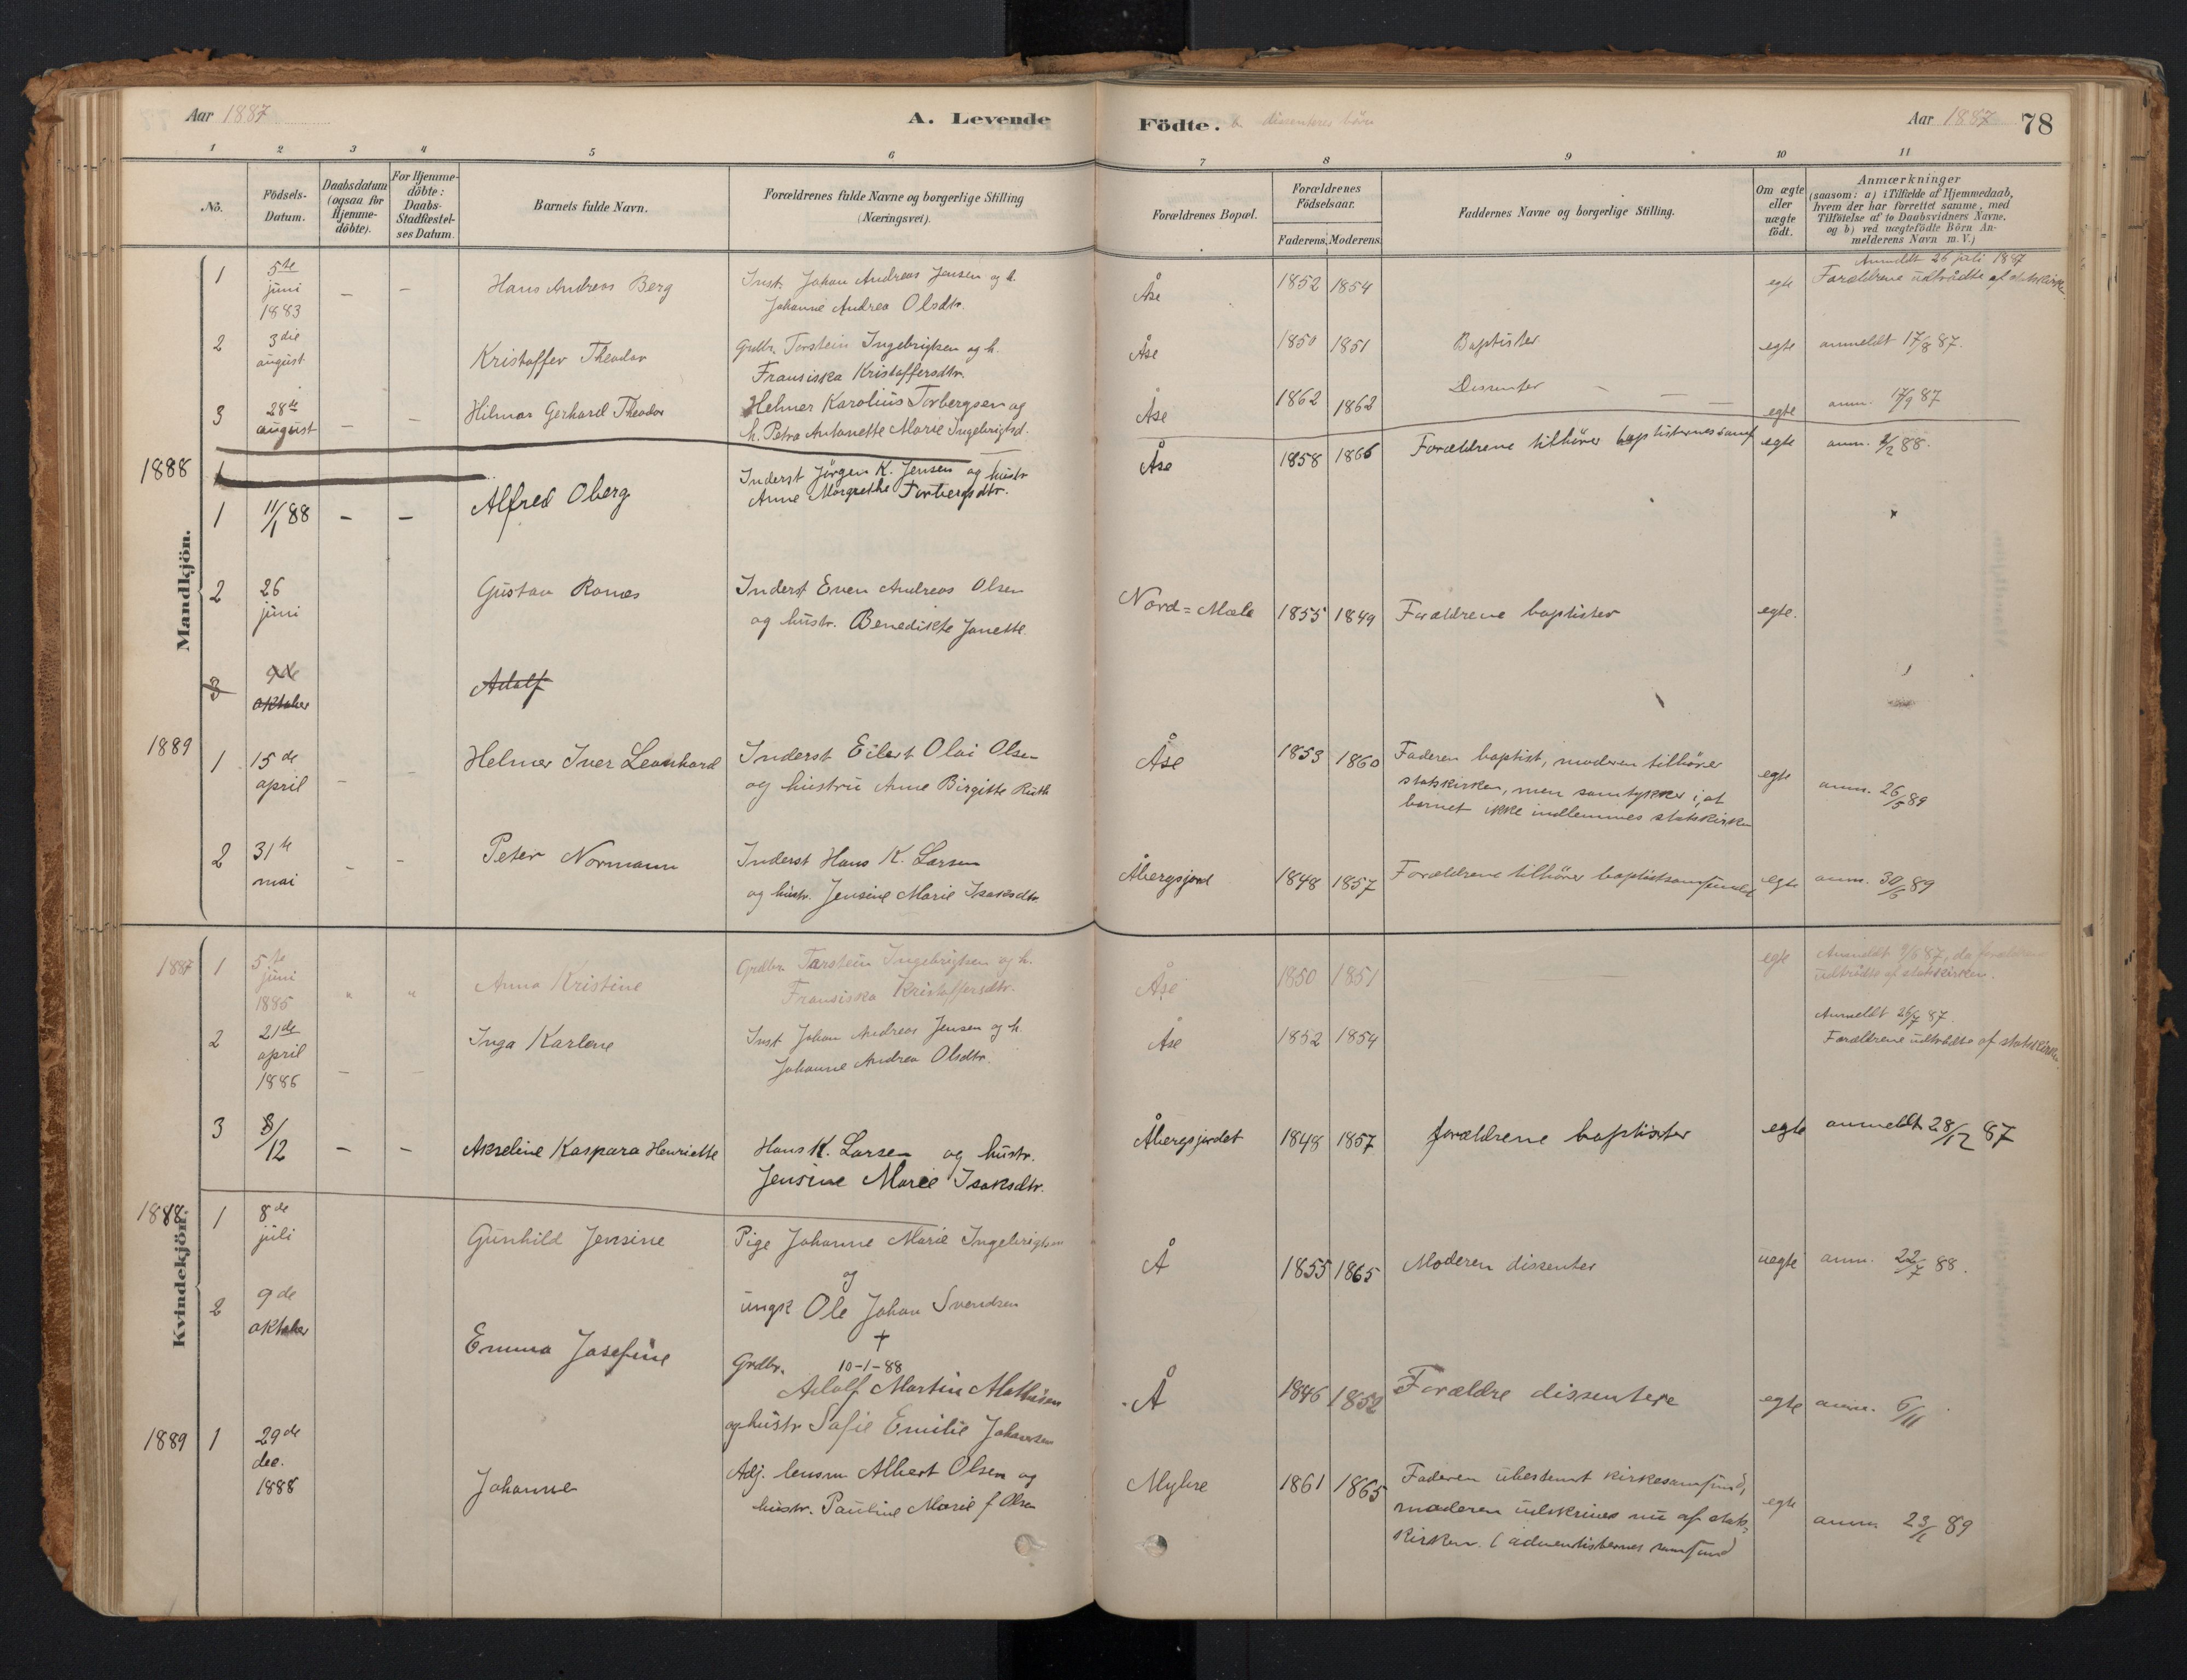 Aar 1887
A. Levende
Födte. dissenteres börn
Aar 1887 78
1 2 3 4 5 6 7 8 9 10 11
No.
Födsels-Datum.
Daabsdatum (ogsaa for Hjemme-döbte).
For Hjemme-döbte: Daabs-Stadfæstel-ses Datum.
Barnets fulde Navn.
Forældrenes fulde Navne og borgerlige Stilling (Næringsvei).
Forældrenes Bopæl.
Forældrenes Födselsaar.
Faderens. Moderens.
Faddernes Navne og borgerlige Stilling.
Om ægte eller uægte födt.
Anmærkninger
(saasom: a) i Tilfælde af Hjemmedaab,
hvem der har forrettet samme, med
Tilföielse af to Daabsvidners Navne.
og b) ved uægtefödte Börn An-
melderens Navn m. V.)
Mandkjön.
1 5te juni 1883 – – Hans Andreas Berg
Inst. Johan Andreas Jensen og h.
Johanne Andrea Olsdtr.
Åse 1852 1854 egte
Anmeldt 26 juli 1887
Forældrene udtrådte af statskirken
2 3die august Kristoffer Theodor
Grdbr. Torstein Ingebrigtsen og h.
Fransiska Kristoffersdtr.
Åse 1850 1851 Baptister egte anmeldt 17/8 87.
3 28de august – – Hilmar Gerhard Theodor
Helmer Karolius Torbergsen og
h. Petra Antonette Marie Ingebrigtsd.
Åse 1862 1862 Dissenter – – – egte anm. 17/9 87
1888 1
1 11/1 88 – – Alfred Oberg
Inderst Jörgen K. Jensen og hustr
Anne Margrethe Torbergsdtr.
Åse 1858 1866 Forældrene tilhörer baptisternes samf egte anm. 2/2 88.
2 26 juni Gustav Ranes
Inderst Even Andreas Olsen
og hustr. Benedikte Janette.
Nord=Mæla 1855 1849 Forældrene baptister egte.
3 9de oktober Adolf
1889 1 15de april – – Helmer Iver Leonhard
Inderst Eilert Olai Olsen
og hustru Anne Birgitte Ruth
Åse 1853 1860 Faderen baptist, moderen tilhörer
statskirken, men samtykker i, at
barnet ikke indlemmes statskirken
egte anm. 26/5 89
2 31te mai – – Peter Normann
Inderst Hans K. Larsen
og hustr. Jensine Marie Isaksdtr.
Åbergsjord 1848 1857 Forældrene tilhörer baptistsamfundet egte anm. 30/6 89
Kvindekjön.
1887 1 5te juni 1885 " " Anna Kristine
Grdbr. Torstein Ingebrigtsen og h.
Fransiska Kristoffersdtr.
Åse 1850 1851 egte
Anmeldt 9/6 87, da forældrene
udtrådte af statskirken.
2 21de april 1886 – – Inga Karlene
Inst Johan Andreas Jensen og h.
Johanne Andrea Olsdtr.
Åse 1852 1854
Anmeldt 26/7 87.
Forældrene udtrådte af statskirken
3 8/12 – – Akseline Kaspara Henriette
Hans K. Larsen og hustr.
Jensine Marie Isaksdtr.
Åbergsjordet 1848 1857 forældrene baptister egte anmeldt 28/12 87
1888 1 8de juli Gunhild Jensine
Pige Johanne Marie Ingebrigtsen
og
ungk Ole Johan Svendsen
Å 1855 1865 Moderen dissenter uegte anm. 22/7 88.
2 9de oktober Emma Josefine
†
Grdbr. 10-1-88
Adolf Martin Mathisen
og hustr Sofie Emilie Johansen
Å 1846 1852 Forældre dissentere egte anm. 6/11
1889 1 29de dec. 1888 Johanne
Adj. lensm Albert Olsen og
hustr. Pauline Marie f Olsen
Myhre 1861 1865 Faderen ubestemt kirkesamfund,
moderen udskrives nu af stats-
kirken. (adventisternes samfund
egte anm. 23/1 89